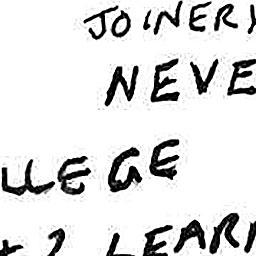 JOINERY
NEVE
LLEGE
2 LEAR